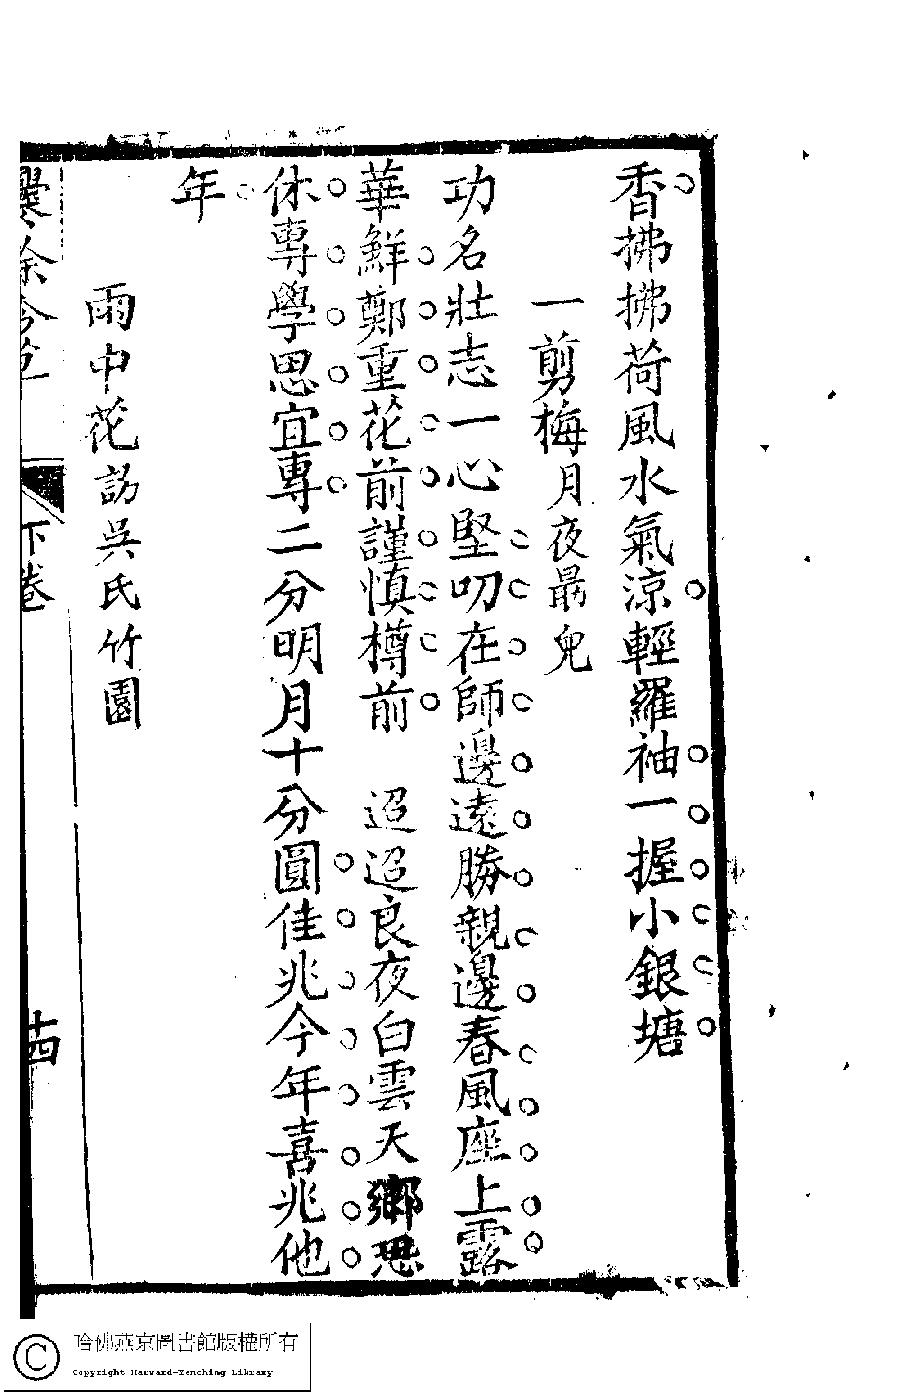 香拂拂荷風水氣涼輕羅袖一握小銀塘
一剪梅月夜勗兒
功名壯志一心堅叨在師邊遠勝親邊春風座上露
華鮮鄭重花前謹慎樽前　迢迢良夜白雲天鄉思
休專學思宜專二分明月十分圓佳兆今年喜兆他
年
雨中花訪吳氏竹園
爨餘吟草
下卷
十四
哈佛燕京圖書館版權所有
Copyright Harvard-Yenching Library